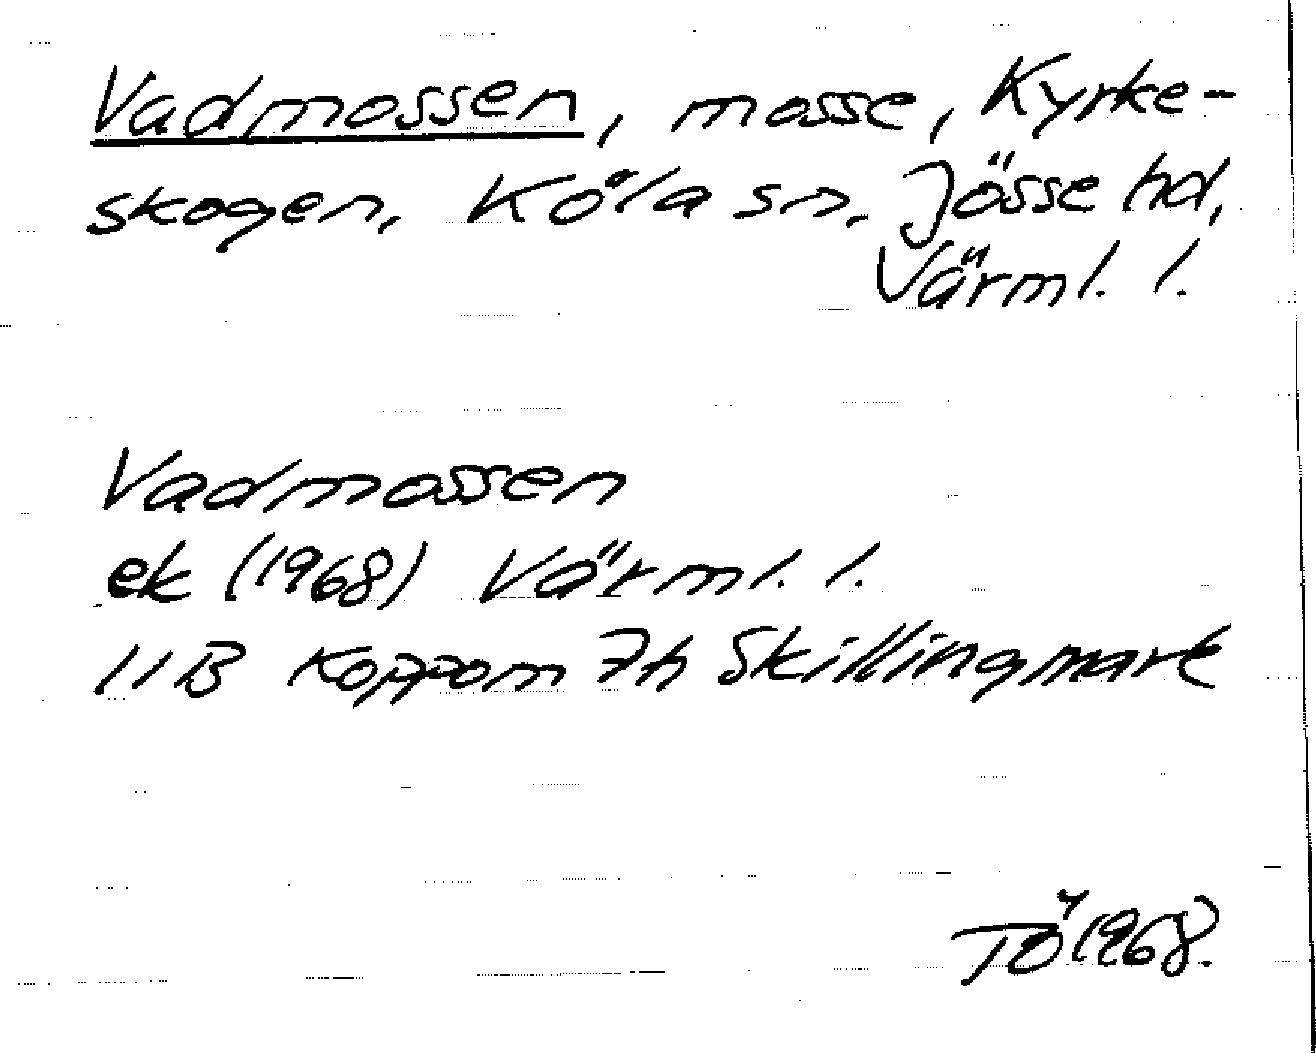 Vadmossen, mosse, Kyrke-
skogen, Köla sn, Jösse hd,
Värml. l.
Vadmossen
ek (1968) Värml. l.
11B Koppom 7h Skillingmark
TÖ 1968.